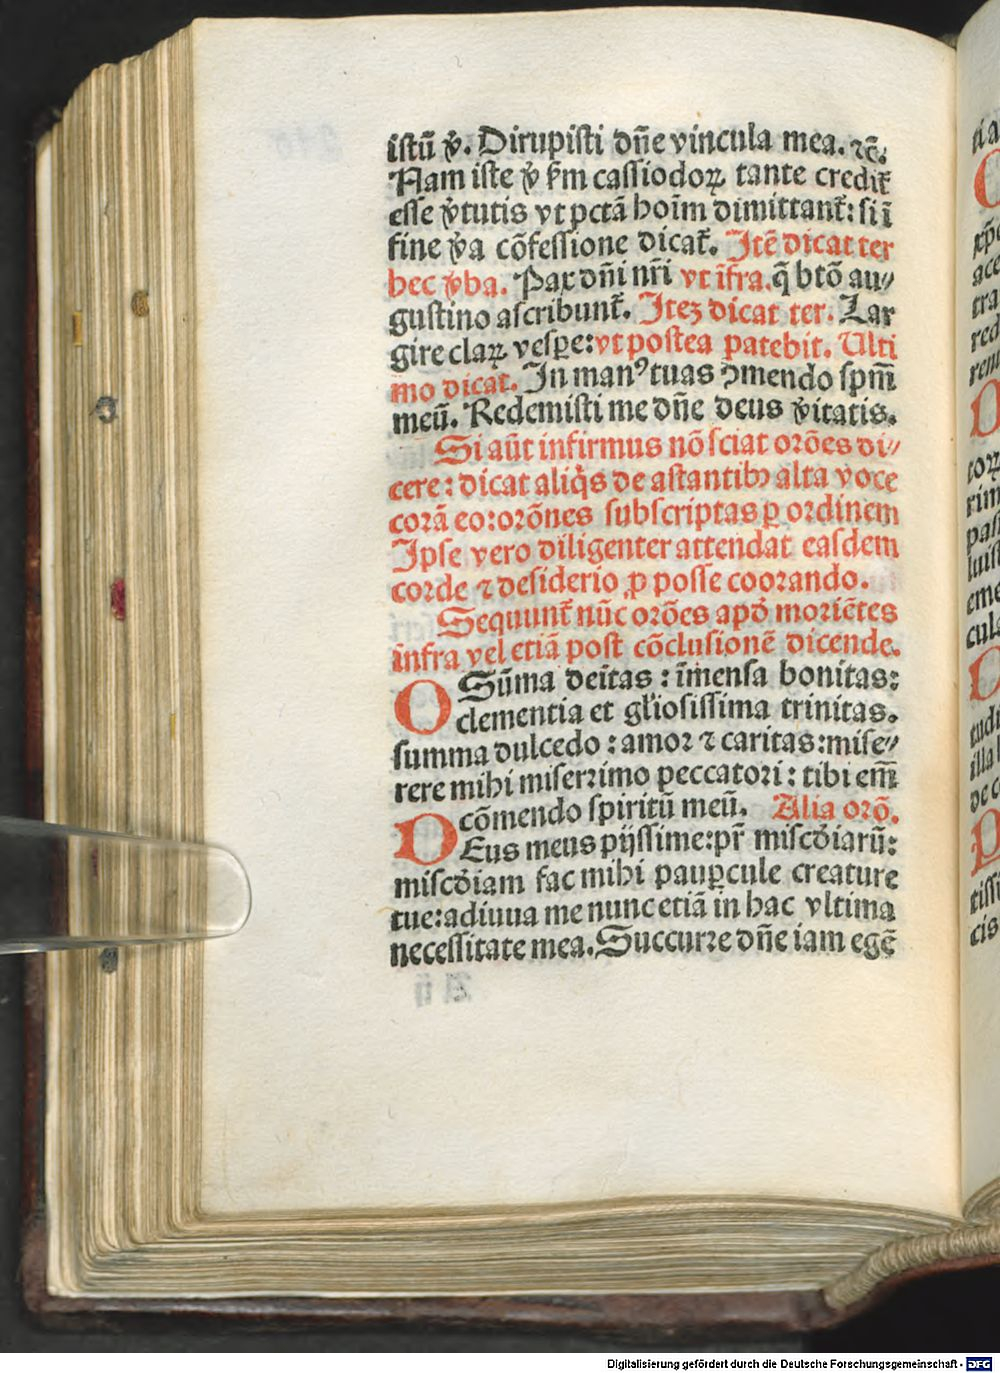 istū ꝟ. Dirupisti dn̄e vincula mea. ⁊c̄.
Nam iste ꝟ ẜm cassiodoꝝ tante credit̄
esse ꝟtutis vt pctā hoīm dimittant̄: si ī
fine ꝟa cōfessione dicat̄. Itē dicat ter
hec ꝟba. Pax dn̄i nr̄i vt īfra. q̄ btō au⸗
gustino ascribunt̄. Iteꝫ dicat ter. Lar
gire claꝝ vesꝑe: vt postea patebit. Ulti
mo dicat. In manꝰ tuas ꝯmendo spm̄
meū. Redemisti me dn̄e deus ꝟitatis.
Si aūt infirmus nō sciat orōes di⸗
cere: dicat aliq̇s de astantibꝫ alta voce
corā eo: orōnes subscriptas ꝑ ordinem
Ipse vero diligenter attendat easdem
corde ⁊ desiderio ꝓ posse coorando.
Sequunt̄ nūc orōes apd̓ moriētes
infra vel etiā post cōclusionē dicende.
O Sūma deitas: īmensa bonitas:
clementia et gl̓iosissima trinitas.
summa dulcedo: amor ⁊ caritas: mise⸗
rere mihi miserrimo peccatori: tibi em̄
cōmendo spiritū meū. Alia orō.
DEus meus pijssime: pr̄ misc̓diarū:
misc̓diam fac mihi pauꝑcule creature
tue: adiuua me nunc etiā in hac vltima
necessitate mea. Succurre dn̄e iam egē
Digitalisierung gefördert durch die Deutsche Forschungsgemeinschaft - DFG